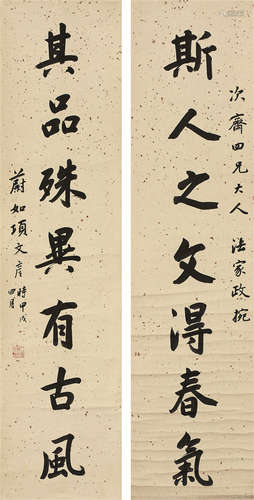 次齋四兄大人 法家政捥
斯人之文得春氣
其品殊異有古風
時甲戌四月
蔚如項文彥